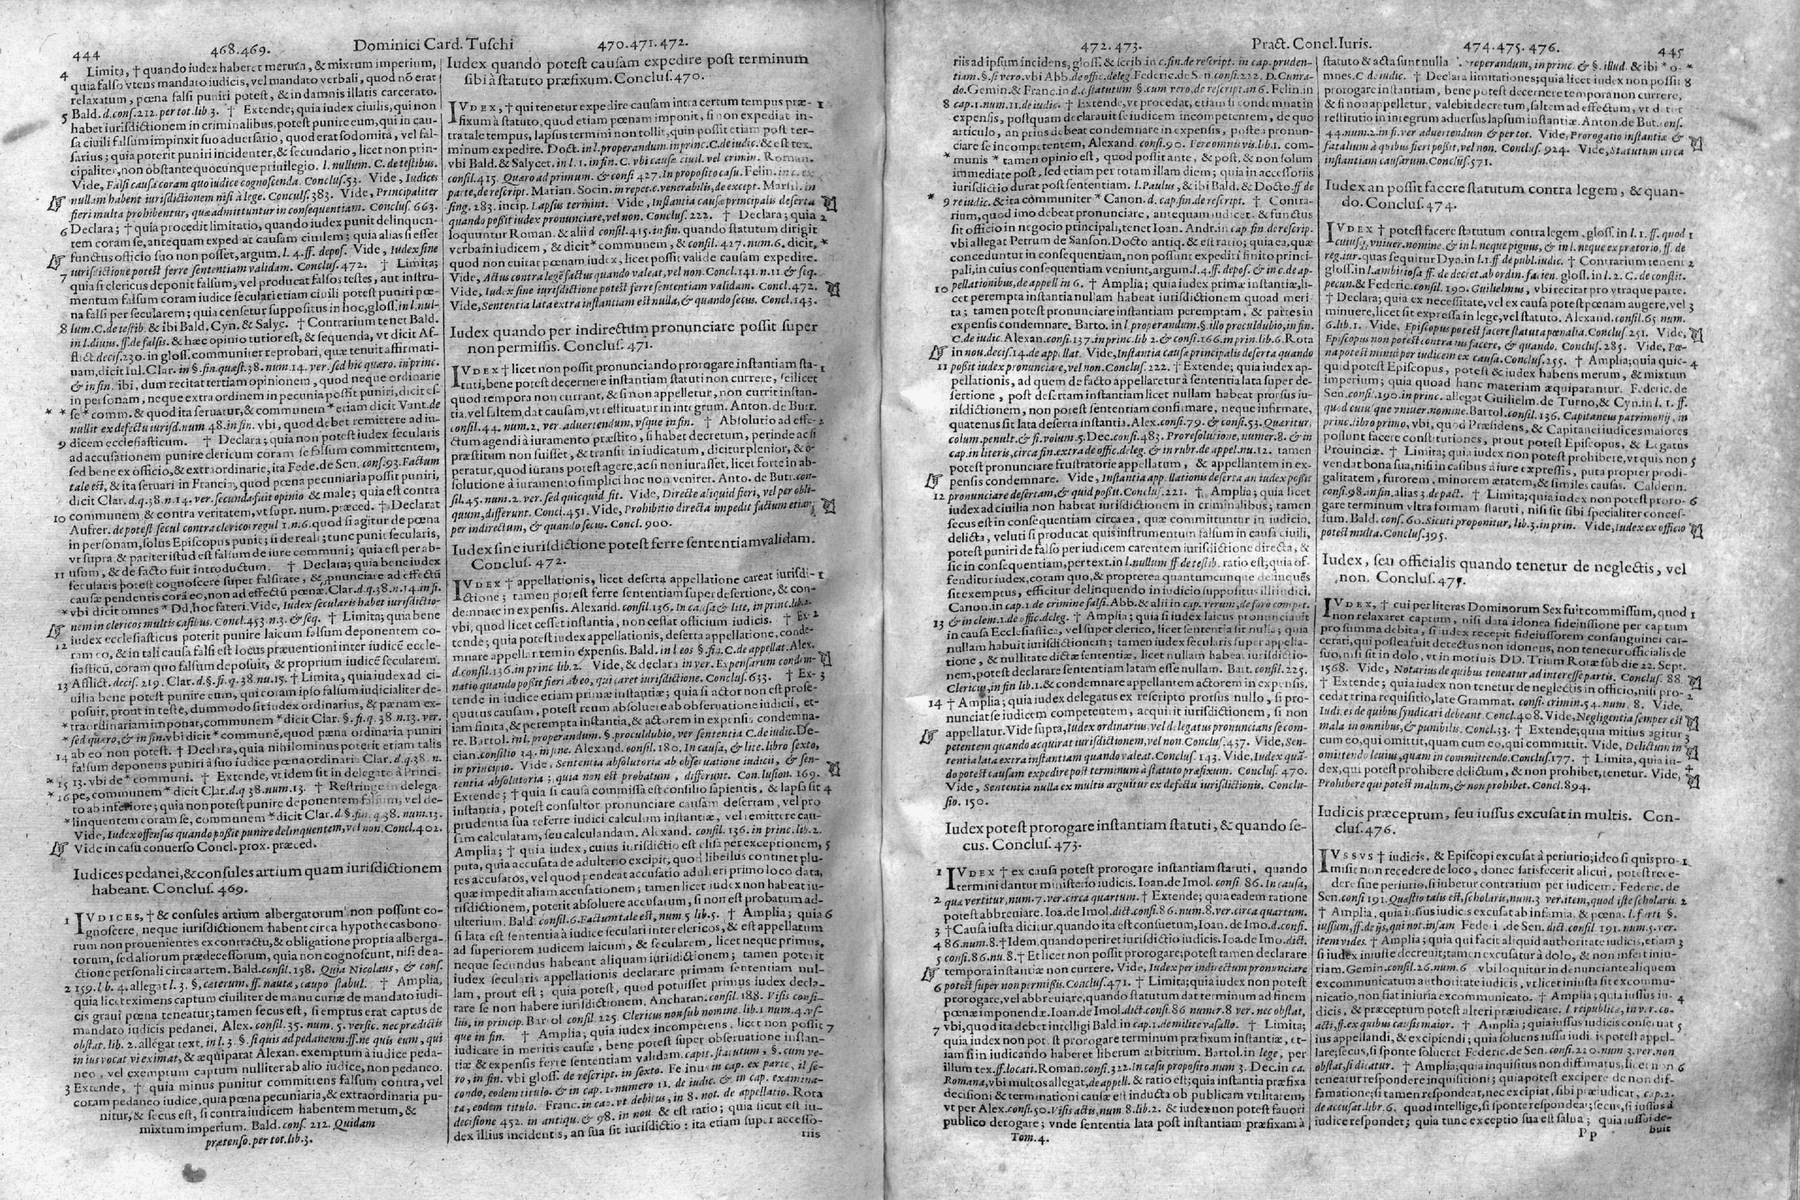 444
468.469.
Dominici Card. Tuschi
470.471.472.
4 Limita, † quando iudex haberet merum, & mixtum imperium,
quia falso vtens mandato iudicis, vel mandato verbali, quod nō erat
relaxatum, pœna falsi puniri potest, & in damnis illatis carcerato.
5 Bald. d. cons. 212. per tot. lib 3. † Extende, quia iudex ciuilis, qui non
habet iurisdictionem in criminalibus, potest punire eum, qui in cau-
sa ciuili falsum impinxit suo aduersario, quod erat sodomita, vel fal-
sarius; quia poterit puniri incidenter, & secundario, licet non prin-
cipaliter, non obstante quocunque priuilegio. l. nullum. C. de testibus.
Vide, Falsi causa coram quo iudice cognoscenda. Conclus. 53. Vide, Iudices
nullam habent iurisdictionem nisi à lege. Conclus. 383. Vide, Principaliter
fieri multa prohibentur, quæ admittuntur in consequentiam. Conclus. 663.
6 Declara; † quia procedit limitatio, quando iudex punit delinquen-
tem coram se, antequam expediat causam ciuilem; quia aliàs si esset
functus officio suo non posset, argum. l. 4. ff. depos. Vide, Iudex sine
iurisdictione potest ferre sententiam validam. Conclus. 472. † Limita;
7 quia si clericus deponit falsum, vel producat falsos testes, aut instru-
mentum falsum coram iudice seculari etiam ciuili potest puniri pœ-
na falsi per secularem; quia censetur suppositus in hoc, glos. in l. nul-
8 lum. C. de testib. & ibi Bald. Cyn. & Salyc. † Contrarium tenet Bald.
in l. dium. ff. de falsis. & hæc opinio tutior est, & sequenda, vt dicit Af-
flict. decis. 230. in gloss. communiter reprobari, quæ tenuit affirmati-
uam, dicit Iul. Clar. in §. fin. quæst. 38. num. 14. ver. sed hic quæro. in princ.
& in fin. ibi, dum recitat tertiam opinionem, quod neque ordinarie
in personam, neque extra ordinem in pecunia possit puniri, dicit es-
** se * comm. & quod ita seruatur, & communem * etiam dicit Vant. de
nullit ex defectu iurisd. num 48. in fin. vbi, quod debet remittere ad iu-
9 dicem ecclesiasticum. † Declara; quia non potest iudex secularis
ad accusationem punire clericum coram se falsum committentem,
sed bene ex officio, & extraordinarie, ita Fede. de Sen. cons. 93. Factum
tale est, & ita seruari in Francia, quod pœna pecuniaria possit puniri,
dicit Clar. d. q. 38. n. 14. ver. secunda fuit opinio & male; quia est contra
communem & contra veritatem, vt supr. num. præced. † Declarat
10 Aufrer. de potest secul contra clericos regul 1. n. 6. quod si agitur de pœna
in personam, solus Episcopus punit; si de reali; tunc punit secularis,
vt supra & pariter istud est falsum de iure communi; quia est per ab-
usum, & de facto fuit introductum. † Declara; quia bene iudex
11 secularis potest cognoscere super falsitate, & pnunciare ad effectū
causæ pendentis corā eo, non ad effectū pœnæ. Clar. d. q. 38. n. 14. in fi.
* vbi dicit omnes * Dd. hoc fateri. Vide, Iudex secularis habet iurisdictio-
nem in clericos multis casibus. Concl. 453 n. 3. & seq. † Limita; quia bene
12 iudex ecclesiasticus poterit punire laicum falsum deponentem co-
ram eo, & in tali causa falsi est locus præuentioni inter iudicē eccle-
siasticū, coram quo falsum deposuit, & proprium iudicē secularem.
13 Afflict. decis. 219. Clar. d. §. fi. q. 38. nu. 15. † Limita, quia iudex ad ci-
uilia bene potest punire eum, qui coram ipso falsum iudicialiter de-
posuit, pront in teste, dummodo sit iudex ordinarius, & pœnam ex-
* traordinariam imponat, communem * dicit Clar. §. fi. q. 38. n. 13. ver.
* sed quæro, & in fin. vbi dicit * communē, quod pœna ordinaria puniri
ab eo non potest. † Declara, quia nihilominus poterit etiam talis
14 falsum deponens puniri à suo iudice pœna ordinaria. Clar. d. q. 38. n.
* 15 13. vbi de * communi. † Extende, vt idem sit in delegato à Princi-
* 16 pe, communem * dicit Clar. d. q 38. num. 13. † Restringe in delega-
to ab inferiore; quia non potest punire deponentem falsum, vel de-
* linquentem coram se, communem * dicit Clar. d. §. fin. q. 38. num. 13.
Vide, Iudex offensus quando possit punire delinquentem, vel non. Concl. 402.
Vide in casu conuerso Concl. prox. præced.
Iudices pedanei, & consules artium quam iurisdictionem
habeant. Conclus. 469.
1 IVDICES, † & consules artium albergatorum non possunt co-
gnoscere, neque iurisdictionem habent circa hypothecas bono-
rum non prouenientes ex contractu, & obligatione propria alberga-
torum, sed aliorum prædecessorum, quia non cognoscunt, nisi de a-
ctione personali circa artem. Bald. consil. 158. Quia Nicolaus, & cons.
2 159. l b. 4. allegat l. 3. §, cæterum. ff. nautæ, caupo stabul. † Amplia,
quia licet eximens captum ciuiliter de manu curiæ de mandato iudi-
cis graui pœna teneatur; tamen secus est, si emptus erat captus de
mandato iudicis pedanei. Alex. consil. 35. num. 5. versic. nec prædictis
obstat. lib. 2. allegat text. in l. 3 §. si quis ad pedaneum. ff. ne quis eum, qui
in ius vocat vi eximat, & æquiparat Alexan. exemptum à iudice peda-
neo, vel exemptum captum nulliter ab alio iudice, non pedaneo.
3 Extende, † quia minus punitur committens falsum contra, vel
coram pedaneo iudice, quia pœna pecuniaria, & extraordinaria pu-
nitur, & secus est, si contra iudicem habentem merum, &
mixtum imperium. Bald. cons. 212. Quidam
prætenso. per tot. lib. 3.
Iudex quando potest causam expedire post terminum
sibi à statuto præfixum. Conclus. 470.
IVDEX, † qui tenetur expedire causam intra certum tempus præ- 1
fixum à statuto, quod etiam pœnam imponit, si non expediat in-
tra tale tempus, lapsus termini non tollit, quin possit etiam post ter-
minum expedire. Doct. in l. properandum. in princ. C. de iudic. & est tex.
vbi Bald. & Salycet. in l. 1. in fin. C. vbi causæ ciuil. vel crimin. Roman.
consil. 415. Quæro ad primum. & consi 427. In proposito casu. Felin. in c. ex
parte, de rescript. Marian. Socin. in repet. c. venerabilis, de except. Marsil. in
sing. 283. incip. Lapsus termini. Vide, Instantia causæ principalis deserta
quando possit iudex pronunciare, vel non. Conclus. 222. † Declara; quia 2
loquuntur Roman. & alii d consil. 415. in fin. quando statutum dirigit
verba in iudicem, & dicit * communem, & consil. 427. num. 6. dicit, *
quod non cuitat pœnam iudex, licet possit valide causam expedire.
Vide, Actus contra legē factus quando valeat, vel non. Concl. 141. n. 11 & seq.
Vide, Iudex sine iurisdictione potest ferre sententiam validam. Concl. 472.
Vide, Sententia lata extra instantiam est nulla, & quando secus. Concl. 143.
Iudex quando per indirectum pronunciare possit super
non permissis. Conclus. 471.
IVDEX † licet non possit pronunciando prorogare instantiam sta- 1
tuti, bene potest decernere instantiam statuti non currere, scilicet
quod tempora non currant, & si non appelletur, non currit instan-
tia, vel saltem dat causam, vt restituatur in integrum. Anton. de Butr.
consil. 44. num. 2. ver. aduertendum, vsque in fin. † Absolutio ad effe- 2
ctum agendi à iuramento præstito, si habet decretum, perinde ac si
præstitum non fuisset, & transit in iudicatum, dicitur plenior, & o-
peratur, quod iurans potest agere, ac si non iurasset, licet forte in ab-
solutione à iuramento simplici hoc non veniret. Anto. de But. con-
sil. 45. num. 2. ver. sed quicquid sit. Vide, Directe aliquid fieri, vel per obli-
quum, differunt. Concl. 451. Vide, Prohibitio directa impedit factum etiam
per indirectum, & quando secus. Concl. 900.
Iudex sine iurisdictione potest ferre sententiam validam.
Conclus. 472.
IVDEX † appellationis, licet deserta appellatione careat iurisdi- 1
ctione; tamen potest ferre sententiam super desertione, & con-
demnare in expensis. Alexand. consil. 136. In causa & lite, in princ. lib. 2.
vbi, quod licet cesset instantia, non cessat officium iudicis. † Ex- 2
tende; quia potest iudex appellationis, deserta appellatione, conde-
mnare appellatum in expensis. Bald. in l. eos §. fi. C. de appellat. Alex.
d. consil. 136. in princ lib. 2. Vide, & declara in ver. Expensarum condem-
natio quando possit fieri ab eo, qui caret iurisdictione. Conclus. 633. † Ex- 3
tende in iudice etiam primæ instantiæ; quia si actor non est prose-
quutus causam, potest reum absoluere ab obseruatione iudicii, et-
iam finita, & perempta instantia, & actorem in expensis condemna-
re. Bartol. in l. properandum. §. proculdubio, ver sententia C. de iudic. De-
cian. consilio 14. in fine. Alexand. consil. 180. In causa, & lite. libro sexto,
in principio. Vide, Sententia absolutoria ab obseruatione iudicii, & sen-
tentia absolutoria; quia non est probatum, differunt. Conclusion. 169.
Extende; † quia si causa commissa est consilio sapientis, & lapsa sit 4
instantia, potest consultor pronunciare causam desertam, vel pro
prudentia sua referre iudici calculum instantiæ, vel remittere cau-
sam calculatam, seu calculandam. Alexand. consil. 136. in princ. lib. 2.
Amplia; † quia iudex, cuius iurisdictio est elisa per exceptionem, 5
puta, quia accusata de adulterio excipit, quod libellus continet plu-
res accusatos, vel quod pendeat accusatio adulteri primo loco data,
quæ impedit aliam accusationem; tamen licet iudex non habeat iu-
risdictionem, poterit absoluere accusatum, si non est probatum ad-
ulterium. Bald consil. 6. Factum tale est, num 5 lib. 5. † Amplia; quia 6
si lata est sententia à iudice seculari inter clericos, & est appellatum
ad superiorem iudicem laicum, & secularem, licet neque primus,
neque secundus habeant aliquam iurisdictionem; tamen poterit
iudex secularis appellationis declarare primam sententiam nul-
lam, prout est; quia potest, quod potuisset primus iudex decla-
rare se non habere iurisdictionem. Ancharan. consil. 188. Visis consi-
liis, in princip. Bartol consil. 225 Clericus non sub nomine. lib 1 num. 4. vs-
que in fin. † Amplia; quia iudex incompetens, licet non possit 7
iudicare in meritis causæ, bene potest super obseruatione instan-
tiæ & expensis ferre sententiam validam. capit. statutum, §. cum ve-
ro, in fin. vbi gloss. de rescript. in sexto. Felinus in cap. ex parte, il se-
condo, eodem titulo. & in cap. 1. numero 11. de iudic. & in cap. examina-
ta, eodem titulo. Franc. in cap. vt debitus, in 8. not. de appellatio. Rota
decisione 452. in antiqu. & 98. in nou. & est ratio; quia sicut est iu-
dex illius incidentis, an sua sit iurisdictio; ita etiam super accesso-
riis
472.473.
Pract. Concl. Iuris.
474.475.476.
445
riis ad ipsum incidens, & gloss. & scrib. in c. fin. de rescript. in cap. pruden-
tiam. §. si vero. vbi Abb. de offic. deleg. Federic. de Sen. cons. 222. D. Cunra-
do. Gemin. & Franc. in d. c. statutum §. cum vero. de rescriptis in 6. Felin. in
8 cap. 1. num. 11. de iudic. † Extende, vt procedat, etiam si condemnat in
expensis, postquam declarauit se iudicem incompetentem, de quo
articulo, an prius debeat condemnare in expensis, postea pronun-
ciare se incompetentem, Alexand. consi. 90. Ferè omnis vis. lib. 1. com-
* munis * tamen opinio est, quod possit ante, & post, & non solum
immediate post, sed etiam per totam illam diem; quia in accessoriis
iurisdictio durat post sententiam. l. Paulus, & ibi Bald. & Docto. ff de
* 9 re iudic. & ita communiter * Canon. d. cap. fin. de rescript. † Contra-
rium, quod imo debeat pronunciare, antequam iudicet, & functus
sit officio in negocio principali, tenet Ioan. Andr. in cap. fin de rescript.
vbi allegat Petrum de Sanson. Docto antiq. & est ratio; quia ea, quæ
conceduntur in consequentiam, non possunt expediri finito princi-
pali, in cuius consequentiam veniunt, argum. l. 4. ff. depos. & in c. de ap-
10 pellationibus, de appell in 6. † Amplia; quia iudex primæ instantiæ, li-
cet perempta instantia nullam habeat iurisdictionem quoad meri-
ta; tamen potest pronunciare instantiam peremptam, & partes in
expensis condemnare. Barto. in l. properandum. §. illo proculdubio, in fin.
C. de iudic. Alexan. consi. 137. in princ. lib 2. & consi. 166. in prin. lib. 6. Rota
in nou. decis. 14. de appellat. Vide, Instantia causæ principalis deserta quando
11 possit iudex pronunciare, vel non. Conclus. 222. † Extende; quia iudex ap-
pellationis, ad quem de facto appellaretur à sententia lata super de-
sertione, post desertam instantiam licet nullam habeat prorsus iu-
risdictionem, non potest sententiam confirmare, neque infirmare,
quatenus sit lata deserta instantia. Alex. consi. 79. & consi. 53. Quæritur,
colum. penult. & fi. volum. 5. Dec. consi. 483. Pro resolutione, numer. 8. & in
cap. in literis, circa fin. extra de offic. deleg. & in rubr. de appel. nu. 12. tamen
potest pronunciare frustratorie appellatum, & appellantem in ex-
pensis condemnare. Vide, Instantia appellationis deserta an iudex possit
12 pronunciare desertam, & quid possit. Conclus. 221. † Amplia; quia licet
iudex ad ciuilia non habeat iurisdictionem in criminalibus; tamen
secus est in consequentiam circa ea, quæ committuntur in iudicio,
delicta, veluti si producat quis instrumentum falsum in causa ciuili,
potest puniri de falso per iudicem carentem iurisdictione directa, &
sic in consequentiam, per text. in l. nullum ff. de testib. ratio est; quia of-
fenditur iudex, coram quo, & propterea quantumcunque delinquēs
sit exemptus, efficitur delinquendo in iudicio suppositus illi iudici.
Canon. in cap. 1. de crimine falsi. Abb. & alii in cap. verum, de foro compet.
13 & in clem. 1. de offic. deleg. † Amplia; quia si iudex laicus pronunciauit
in causa Ecclesiastica, vel super clerico, licet sententia sit nulla; quia
nullam habuit iurisdictionem; tamen iudex secularis super appella-
tione, & nullitate dictæ sententiæ, licet nullam habeat iurisdictio-
nem, potest declarare sententiam latam esse nullam. Batt. consil. 225.
Clericus, in fin lib. 1. & condemnare appellantem actorem in expensis.
14 † Amplia; quia iudex delegatus ex rescripto prorsus nullo, si pro-
nunciat se iudicem competentem, acquirit iurisdictionem, si non
appellatur. Vide supra, Iudex ordinarius, vel delegatus pronuncians se com-
petentem quando acquirat iurisdictionem, vel non Conclus. 437. Vide, Sen-
tentia lata extra instantiam quando valeat. Conclus. 143. Vide, Iudex quā-
do potest causam expedire post terminum à statuto præfixum. Conclus. 470.
Vide, Sententia nulla ex multis arguitur ex defectu iurisdictionis. Conclu-
sio. 150.
Iudex potest prorogare instantiam statuti, & quando se-
cus. Conclus. 473.
1 IVDEX † ex causa potest prorogare instantiam statuti, quando
termini dantur ministerio iudicis. Ioan. de Imol. consi 86. In causa,
2 quæ vertitur, num. 7. ver. circa quartum. † Extende; quia eadem ratione
potest abbreuiare. Ioa. de Imol. dict. cons. 86. num. 8. ver. circa quartum.
3 † Causa iusta dicitur, quando ita est consuetum, Ioan. de Imo. d. consi.
4 86. num. 8. † Idem, quando periret iurisdictio iudicis. Ioa. de Imo. dict.
5 cons. 86. nu. 8. † Et licet non possit prorogare; potest tamen declarare
tempora instantiæ non currere. Vide, Iudex per indirectum pronunciare
6 potest super non permissis. Conclus. 471. † Limita; quia iudex non potest
prorogare, vel abbreuiare, quando statutum dat terminum ad finem
pœnæ imponendæ. Ioan. de Imol. dict. consi 86 numer 8. ver nec obstat,
7 vbi, quod ita debet intelligi Bald. in cap. 1. de milite vasallo. † Limita;
quia iudex non potest prorogare terminum præfixum instantiæ, et-
iam si in iudicando haberet liberum arbitrium. Bartol. in lege, per
illum tex. ff. locati. Roman. consi. 322. In casu proposito. num 3. Dec. in ca.
Romana, vbi multos allegat, de appell. & ratio est; quia instantia præfixa
decisioni & terminationi causæ est inducta ob publicam vtilitatem,
vt per Alex. consi. 50. Visis actis, num 8. lib. 2. & iudex non potest fauori
publico derogare; vnde sententia lata post instantiam præfixam à
Tom. 4.
statuto & acta sunt nulla properandum, in princ & §. illud. & ibi * o-
mnes. C. d. iudic. † Declara limitationes; quia licet iudex non possit 8
prorogare instantiam, bene potest decernere tempora non currere,
& si non appelletur, valebit decretum, saltem ad effectum, vt detur
restitutio in integrum aduersus lapsum instantiæ. Anton. de But. cons.
44. num. 2. in fi. ver aduertendum & per tot. Vide, Prorogatio instantiæ &
fatalium à quibus fieri possit, vel non. Conclus. 924. Vide, Statutum circa
instantiam causarum. Conclus. 571.
Iudex an possit facere statutum contra legem, & quan-
do. Conclus. 474.
IVDEX † potest facere statutum contra legem, gloss. in l. 1. ff. quod 1
cuiusq; vniuer. nomine. & in l. neque pignus, & in l. neque ex prætorio, ff. de
reg. iur. quas sequitur Dyn. in l. 1. ff de publ. iudic. † Contrarium tenent 2
gloss. in l. ambitiosa ff. de decret. ab ordin. facien. gloss. in l. 2. C. de constit.
pecun. & Federic. consi. 190. Guilielmus, vbi recitat pro vtraque parte.
† Declara; quia ex necessitate, vel ex causa potest pœnam augere, vel 3
minuere, licet sit expressa à lege, vel statuto. Alexand. consi. 65 num.
6. lib. 1. Vide, Episcopus potest facere statuta pœnalia. Conclus 251. Vide,
Episcopus non potest contra ius facere, & quando. Conclus. 285. Vide, Pœ-
na potest minui per iudicem ex causa. Conclus. 255. † Amplia; quia quic- 4
quid potest Episcopus, potest & iudex habens merum, & mixtum
imperium; quia quoad hanc materiam æquiparantur. Federic. de
Sen. consi. 190. in princ. allegat Guilielm. de Turno, & Cyn. in l. 1. ff.
quod cuiusque vniuer. nomine. Bartol. consil. 136. Capitaneus patrimonij, in
princ. libro primo, vbi, quod Præsides, & Capitanei iudices maiores
possunt facere constitutiones, prout potest Episcopus, & Legatus
Prouinciæ. † Limita; quia iudex non potest prohibere, vt quis non 5
vendat bona sua, nisi in casibus à iure expressis, puta propter prodi-
galitatem, furorem, minorem ætatem, & similes causas. Calderin.
consi. 98. in fin. alias 3 de pact. † Limita; quia iudex non potest proro- 6
gare terminum vltra formam statuti, nisi sit sibi specialiter conces-
sum. Bald. cons. 60. Sicuti proponitur, lib. 3. in prin. Vide, Iudex ex officio
potest multa. Concl. 395.
Iudex, seu officialis quando tenetur de neglectis, vel
non. Conclus. 475.
IVDEX, † cui per literas Dominorum Sex fuit commissum, quod 1
non relaxaret captum, nisi data idonea fideiussione per captum
pro summa debita, si iudex recepit fideiussorem consanguinei car-
cerati, qui postea fuit detectus non idoneus, non tenetur officialis de
suo, nisi sit in dolo, vt in motiuis DD. Trium Rotæ sub die 22. Sept.
1568. Vide, Notarius de quibus teneatur ad interesse partis. Conclus. 88.
† Extende; quia iudex non tenetur de neglectis in officio, nisi præ- 2
cedat trina requisitio, late Grammat. consi. crimin. 54. num. 8. Vide,
Iudices de quibus syndicari debeant. Concl. 408. Vide, Negligentia semper est
mala in omnibus, & punibilis. Concl. 33. † Extende; quia mitius agitur 3
cum eo, qui omittit, quam cum eo, qui committit. Vide, Delictum in
omittendo leuius, quam in committendo. Conclus. 177. † Limita, quia iu- 4
dex, qui potest prohibere delictum, & non prohibet, tenetur. Vide,
Prohibere qui potest malum, & non prohibet. Concl. 894.
Iudicis præceptum, seu iussus excusat in multis. Con-
clus. 476.
IVSSVS † iudicis, & Episcopi excusat à periurio; ideo si quis pro- 1
misit non recedere de loco, donec satisfecerit alicui, potest rece-
dere sine periurio, si iubetur contrarium per iudicem. Federic. de
Sen. consi 191. Quæstio talis est, scholaris, num. 3 ver. item, quod iste scholaris. 2
† Amplia, quia iussus iudicis excusat ab infamia, & pœna. l. furti §.
iussum, ff. de ijs, qui not. infam Federici de Sen. dict. consi. 191. num. 5. ver.
item vides. † Amplia; quia qui facit aliquid authoritate iudicis, etiam 3
si iudex iniuste decreuit; tamen excusatur à dolo, & non infert iniu-
riam. Gemin. consil. 26. num. 6 vbi loquitur in denunciante aliquem
excommunicatum authoritate iudicis, vt licet iniusta sit excommu-
nicatio, non fiat iniuria excommunicato. † Amplia; quia iussus iu- 4
dicis, & præceptum potest alteri præiudicare. l reipublicæ, in v. r. co-
acti, ff. ex quibus causis maior. † Amplia; quia iussus iudicis conseruat 5
ius appellandi, & excipiendi; quia soluens iussu iudicis potest appel-
lare; secus, si sponte solueret Federic. de Sen. consi. 220. num 3. ver. non
obstat, si dicatur. † Amplia; quia inquisitus non diffamatus, licet non 6
teneatur respondere inquisitioni; quia potest excipere de non dif-
famatione; si tamen respondeat, nec excipiat, sibi præiudicat, cap. 2.
de accusat. libr. 6. quod intellige, si sponte respondeat; secus, si iussus à
iudice respondet; quia tunc exceptio sua est salua; quia iussus de-
Pp
buit